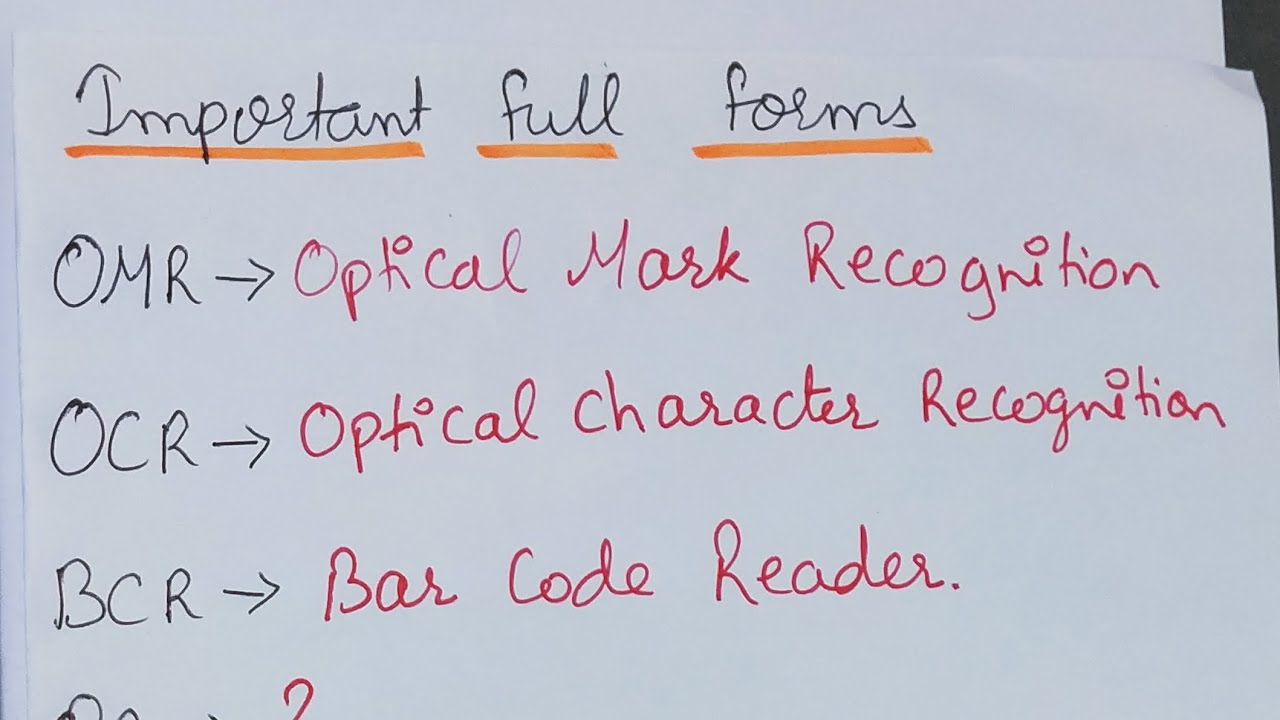 Important full forms
OMR → Optical Mark Recognition
OCR → Optical Character Recognition
BCR → Bar Code Reader.
→ ?